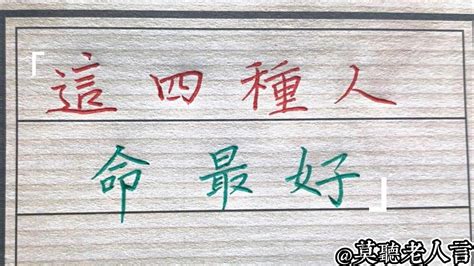 「這四種人
命最好」
@莫聽老人言